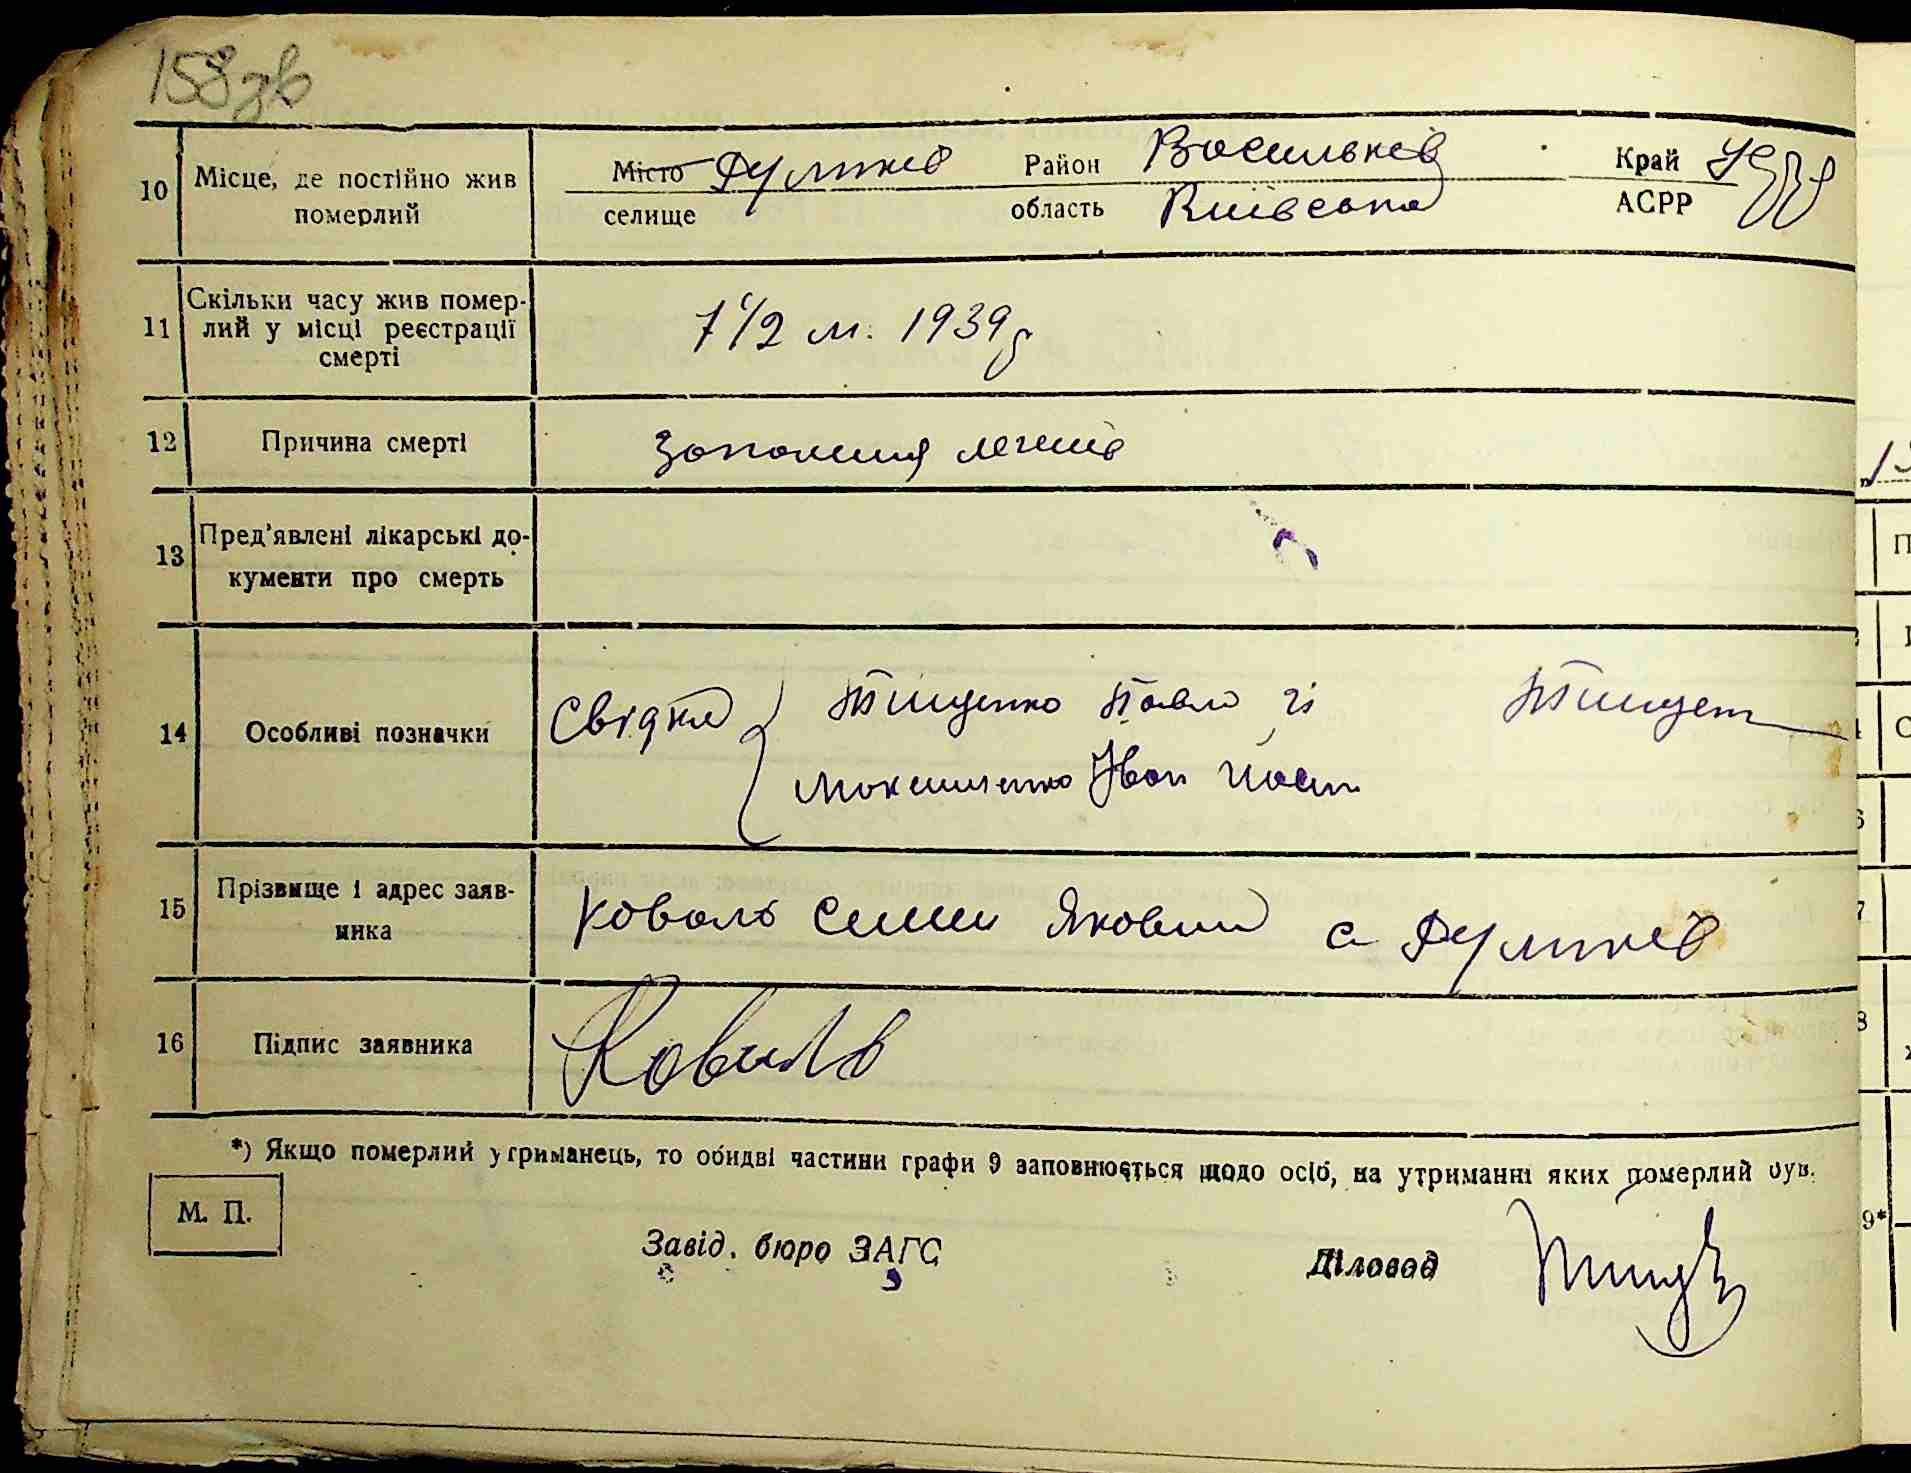 158 зв
10 Місце, де постійно жив померлий
Місто Руликів Район Васильків Край УСРР
селище область Київська АСРР
11 Скільки часу жив померлий у місці реєстрації смерті
1/2 м. 1939 р
12 Причина смерті
запалення легенів
13 Пред'явлені лікарські документи про смерть
14 Особливі позначки
Свідки Тищенко Павло Тищен
Максименко Іван
15 Прізвище і адрес заявника
Коваль Якович с Руликів
16 Підпис заявника
Коваль
*) Якщо померлий утриманець, то обидві частини графи 9 заповнюється щодо осіб, на утриманні яких померлий був.
М. П.
Завід. бюро ЗАГС Діловод
9*